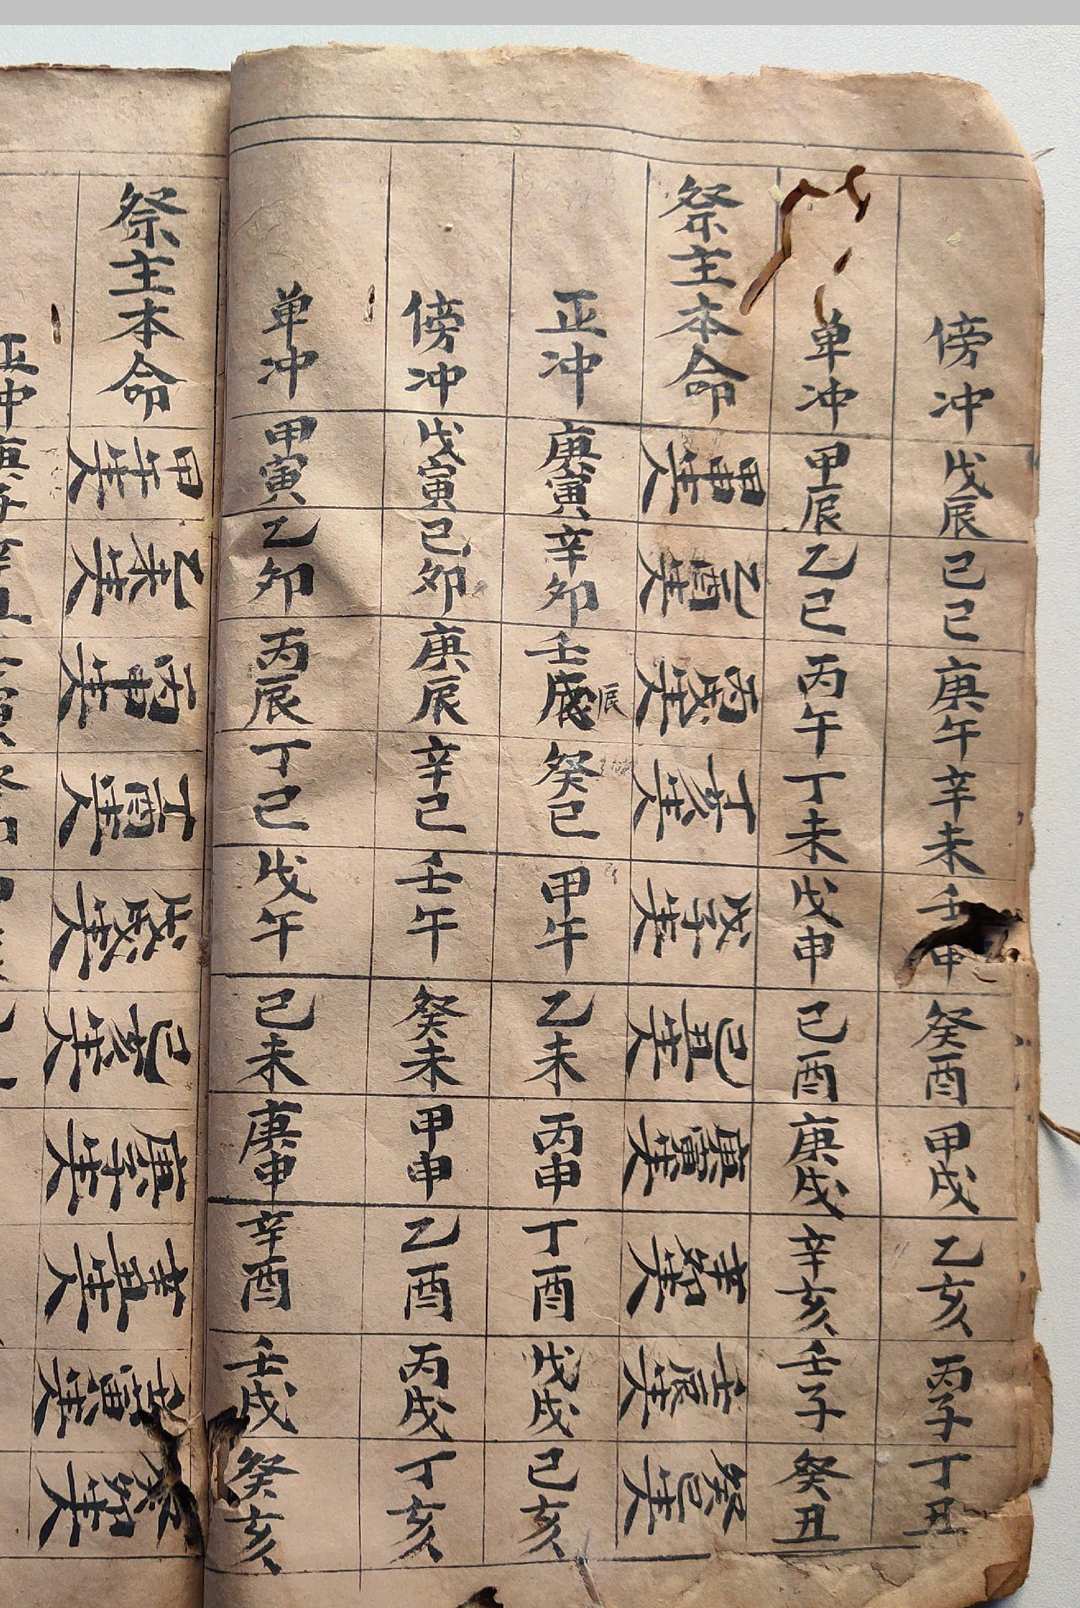 傍冲 戊辰 己巳 庚午 辛未 壬申 癸酉 甲戌 乙亥 丙子 丁丑
单冲 甲辰 乙巳 丙午 丁未 戊申 己酉 庚戌 辛亥 壬子 癸丑
祭主本命 甲申生人 乙酉生人 丙戌生人 丁亥生人 戊子生人 己丑生人 庚寅生人 辛卯生人 壬辰生人 癸巳生人
正冲 庚寅 辛卯 壬辰 癸巳 甲午 乙未 丙申 丁酉 戊戌 己亥
傍冲 戊寅 己卯 庚辰 辛巳 壬午 癸未 甲申 乙酉 丙戌 丁亥
单冲 甲寅 乙卯 丙辰 丁巳 戊午 己未 庚申 辛酉 壬戌 癸亥
祭主本命 甲午生人 乙未生人 丙申生人 丁酉生人 戊戌生人 己亥生人 庚子生人 辛丑生人 壬寅生人 癸卯生人
正冲 庚子